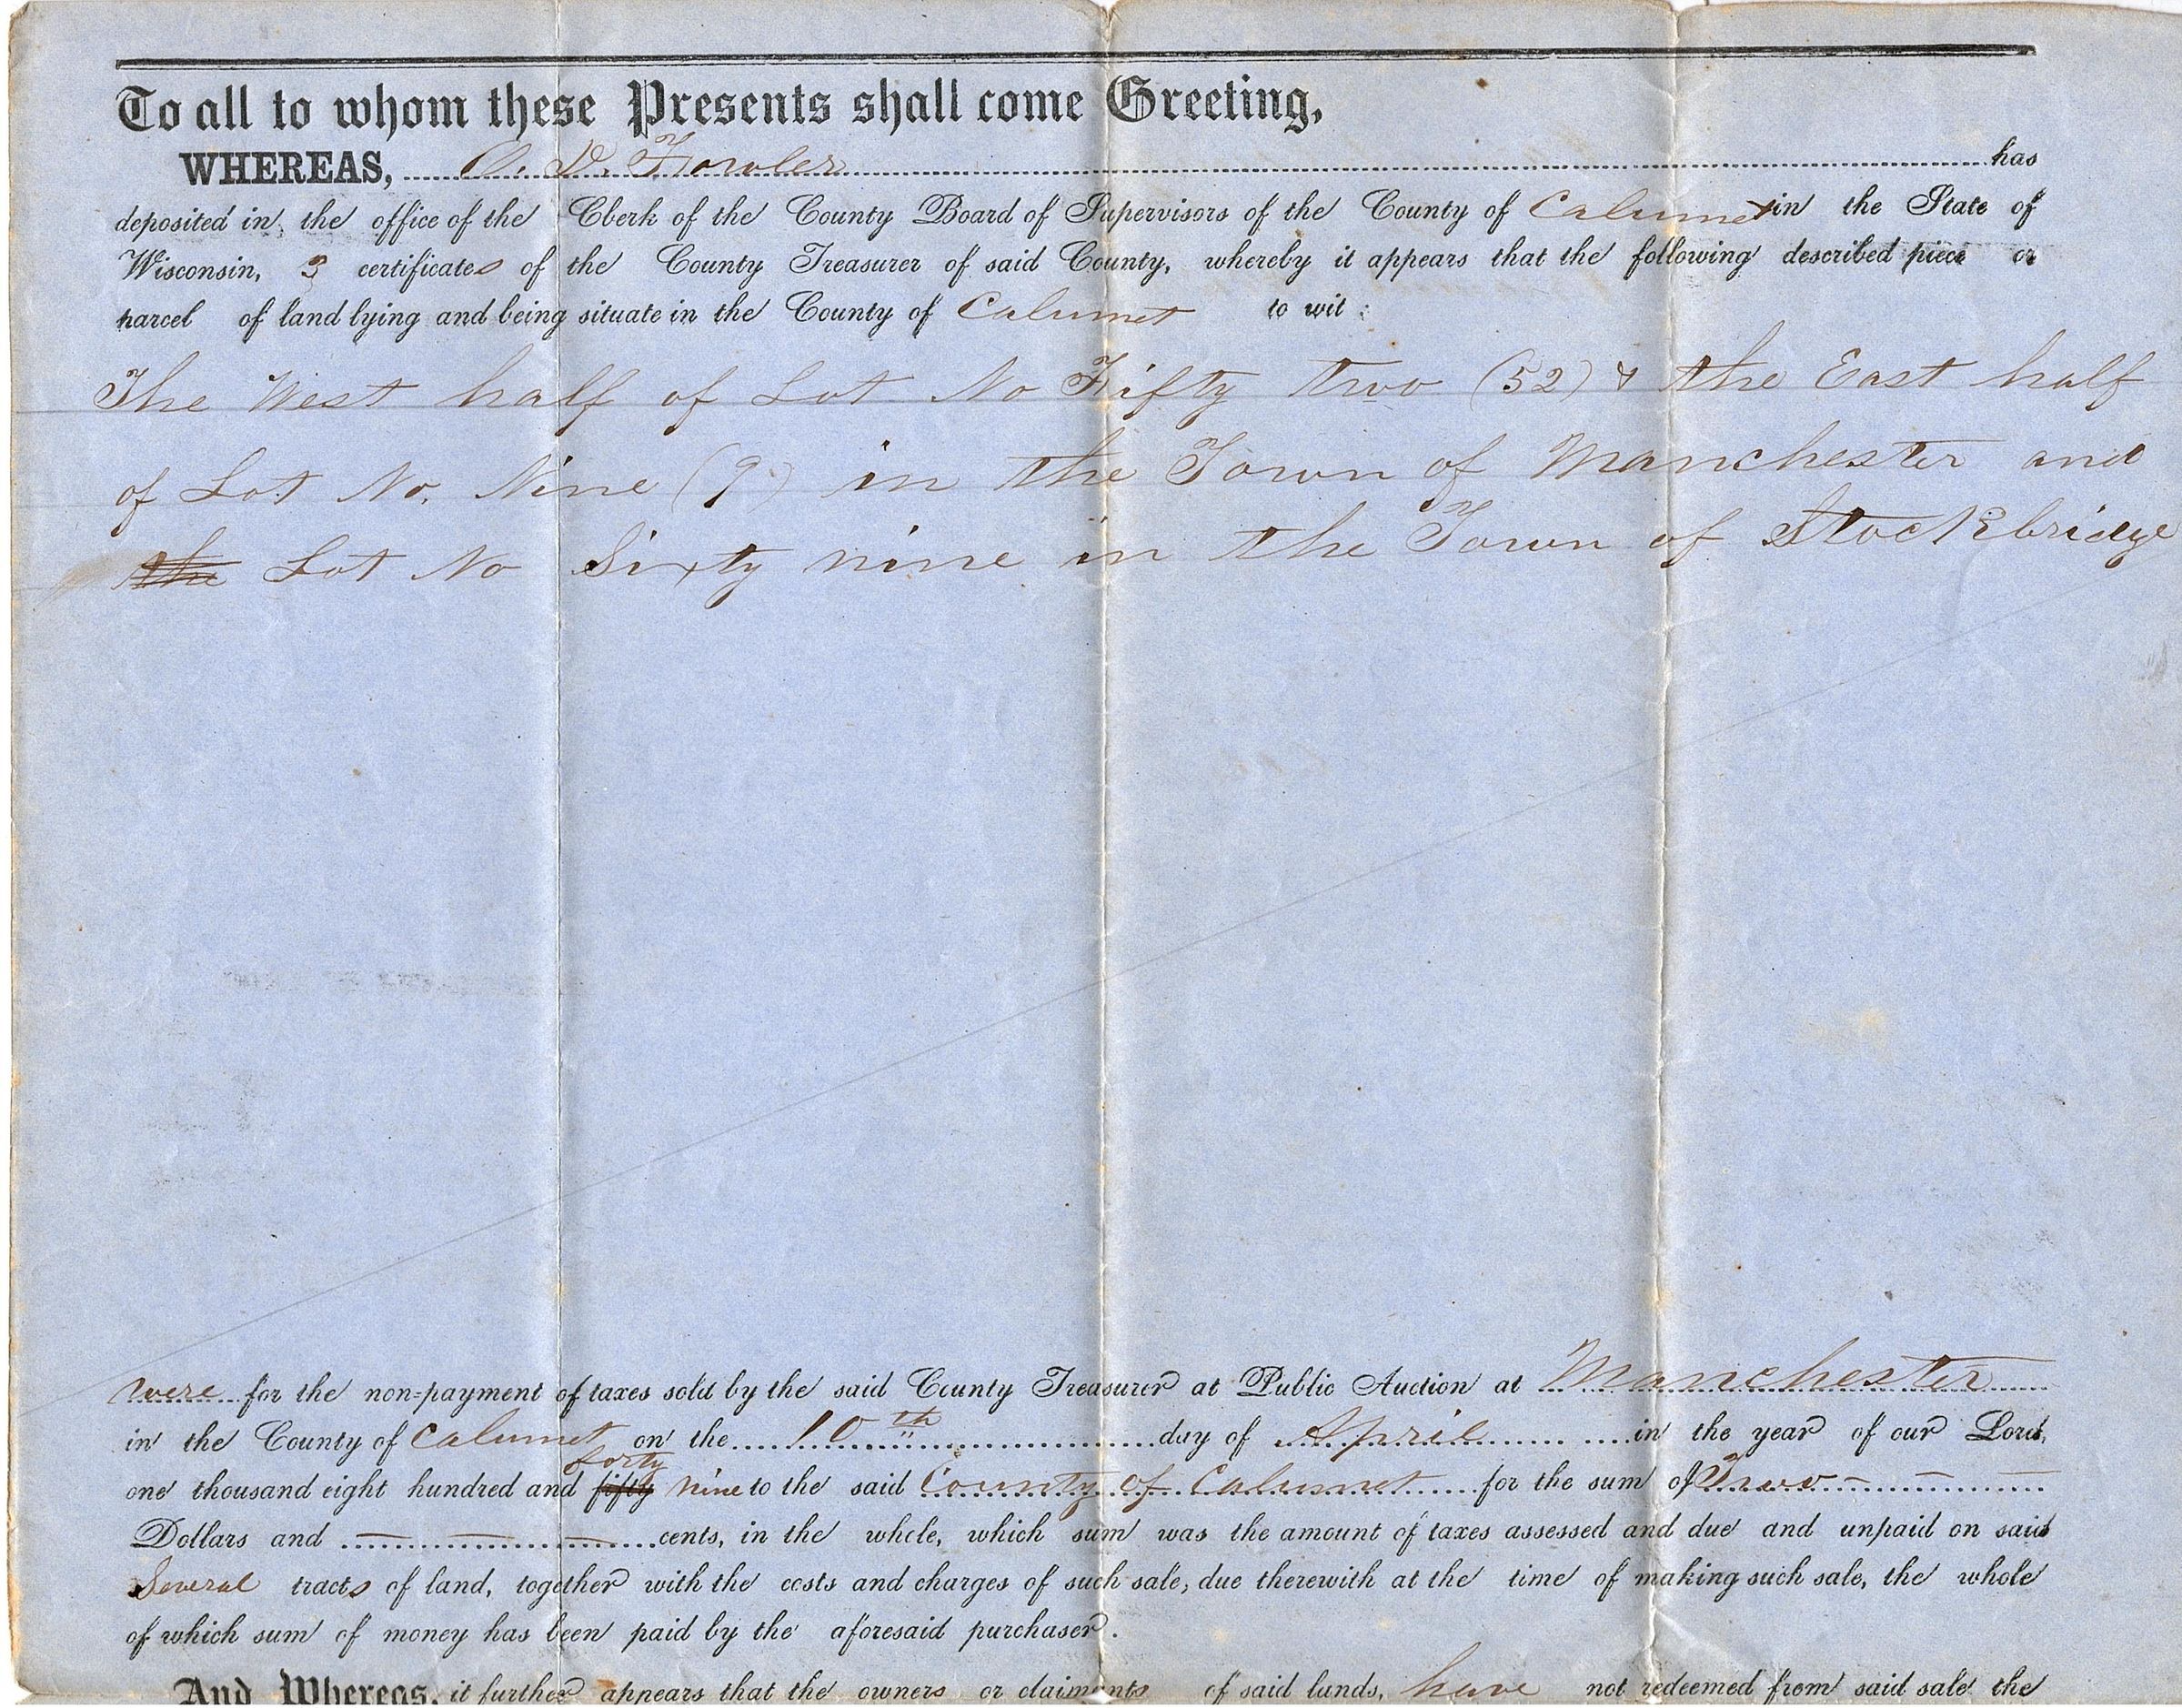 To all to whom these Presents shall come Greeting,
WHEREAS, D. Fowler has
deposited in the office of the Clerk of the County Board of Supervisors of the County of Calumet in the State of
Wisconsin, 3 certificates of the County Treasurer of said County, whereby it appears that the following described piece or
parcel of land lying and being situate in the County of Calumet to wit:
The West half of Lot No Fifty two (52) & the East half
of Lot No. Nine (9) in the Town of Manchester and
the Lot No Sixty nine in the Town of Stockbridge
were for the non-payment of taxes sold by the said County Treasurer at Public Auction at Manchester
in the County of Calumet on the 10th day of April in the year of our Lord,
forty
one thousand eight hundred and fifty nine to the said County of Calumet for the sum of Two
Dollars and cents, in the whole, which sum was the amount of taxes assessed and due and unpaid on said
Several tracts of land, together with the costs and charges of such sale, due therewith at the time of making such sale, the whole
of which sum of money has been paid by the aforesaid purchaser.
And Whereas, it further appears that the owners or claimants of said lands, have not redeemed from said sale the